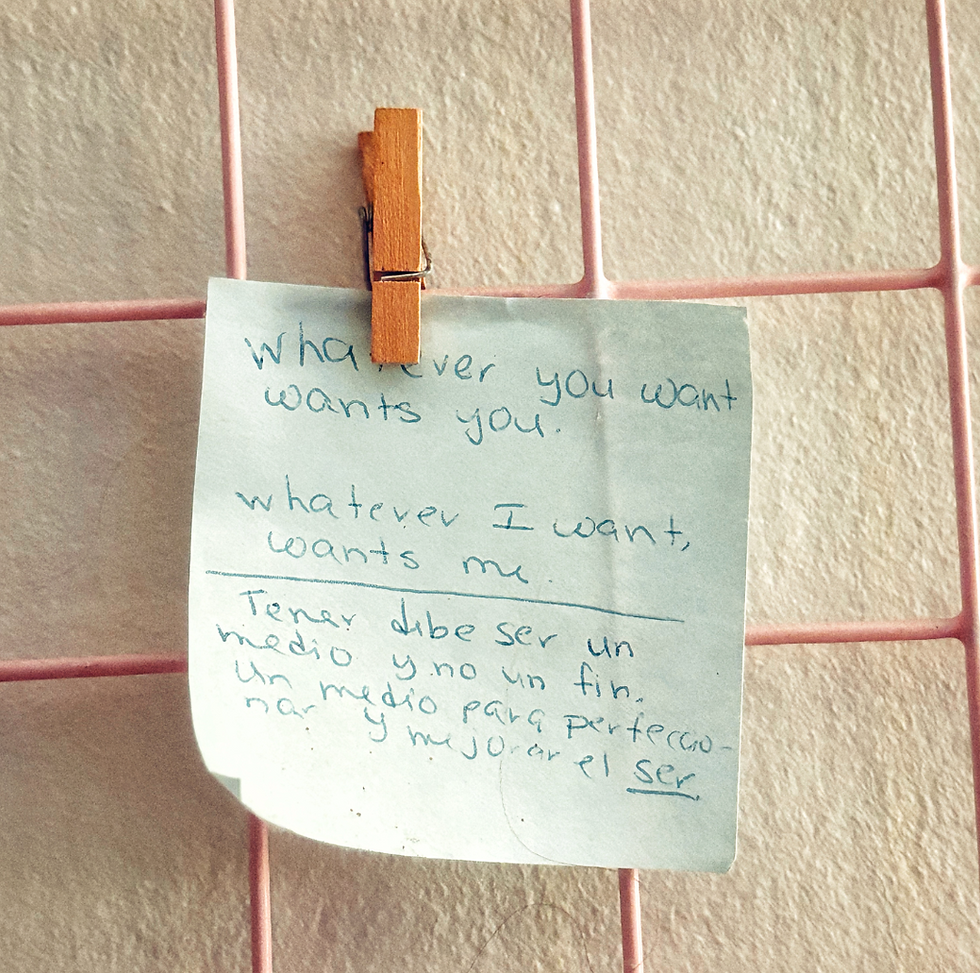 Whatever you want
wants you.
whatever I want,
wants me.
Tener debe ser un
medio y no un fin.
Un medio para perfeccio-
nar y mejorar el ser